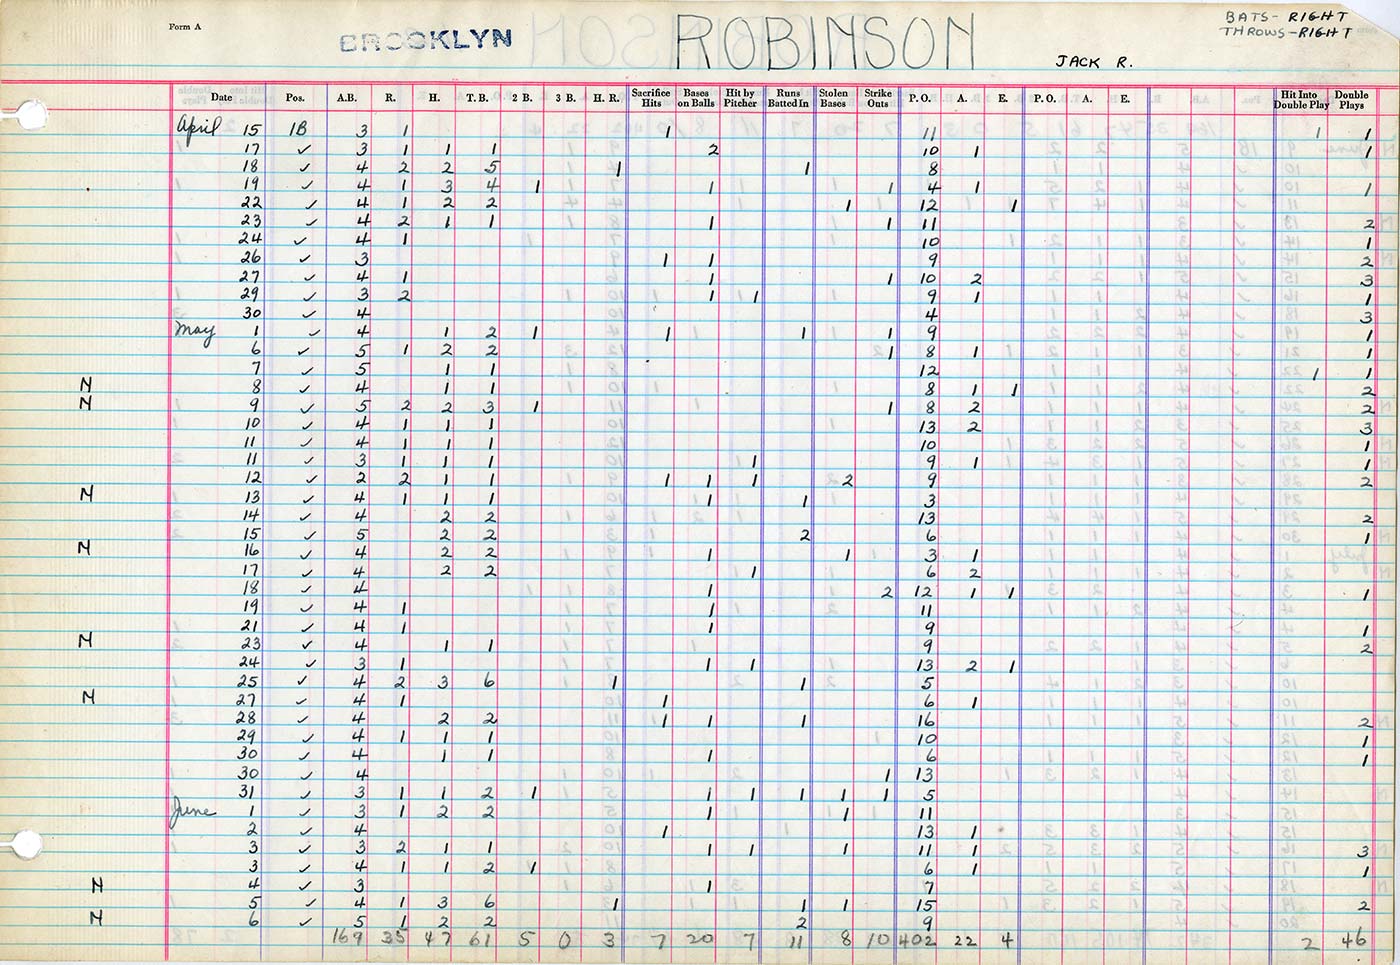 Form A BROOKLYN ROBINSON BATS- RIGHT
THROWS-RIGHT
JACK R.
Date Pos. A.B. R. H. T.B. 2 B. 3 B. H. R. Sacrifice Hits Bases on Balls Hit by Pitcher Runs Batted In Stolen Bases Strike Outs P.O. A. E. P.O. A. E. Hit Into Double Play Double Plays
April 15 1B 3 1 1 11 1 1
17 ✓ 3 1 1 1 2 10 1 1
18 ✓ 4 2 2 5 1 1 8
19 ✓ 4 1 3 4 1 1 1 4 1 1
22 ✓ 4 1 2 2 1 12 1
23 ✓ 4 2 1 1 1 1 11 2
24 ✓ 4 1 10 1
26 ✓ 3 1 1 9 2
27 ✓ 4 1 1 1 10 2 3
29 ✓ 3 2 1 1 9 1 1
30 ✓ 4 4 3
May 1 ✓ 4 1 2 1 1 1 1 9 1
6 ✓ 5 1 2 2 1 8 1 1
7 ✓ 5 1 1 12 1 1
N 8 ✓ 4 1 1 8 1 1 2
N 9 ✓ 5 2 2 3 1 1 8 2 2
10 ✓ 4 1 1 1 13 2 3
11 ✓ 4 1 1 1 10 1
11 ✓ 3 1 1 1 1 9 1 1
12 ✓ 2 2 1 1 1 1 1 2 9 2
N 13 ✓ 4 1 1 1 1 1 3
14 ✓ 4 2 2 13 2
15 ✓ 5 2 2 2 6 1
N 16 ✓ 4 2 2 1 1 3 1
17 ✓ 4 2 2 1 6 2
18 ✓ 4 1 2 12 1 1 1
19 ✓ 4 1 1 11
21 ✓ 4 1 1 9 1
N 23 ✓ 4 1 1 9 2
24 ✓ 3 1 1 1 13 2 1
25 ✓ 4 2 3 6 1 1 5
N 27 ✓ 4 1 1 6 1
28 ✓ 4 2 2 1 1 1 16 2
29 ✓ 4 1 1 1 10 1
30 ✓ 4 1 1 1 6 1
30 ✓ 4 1 13
31 ✓ 3 1 1 2 1 1 1 1 1 1 5
June 1 ✓ 3 1 2 2 1 1 11
2 ✓ 4 1 13 1
3 ✓ 3 2 1 1 1 1 1 11 1 3
3 ✓ 4 1 1 2 1 6 1 1
N 4 ✓ 3 1 7
5 ✓ 4 1 3 6 1 1 1 15 2
N 6 ✓ 5 1 2 2 2 9
169 35 47 61 5 0 3 7 20 7 11 8 10 402 22 4 2 46